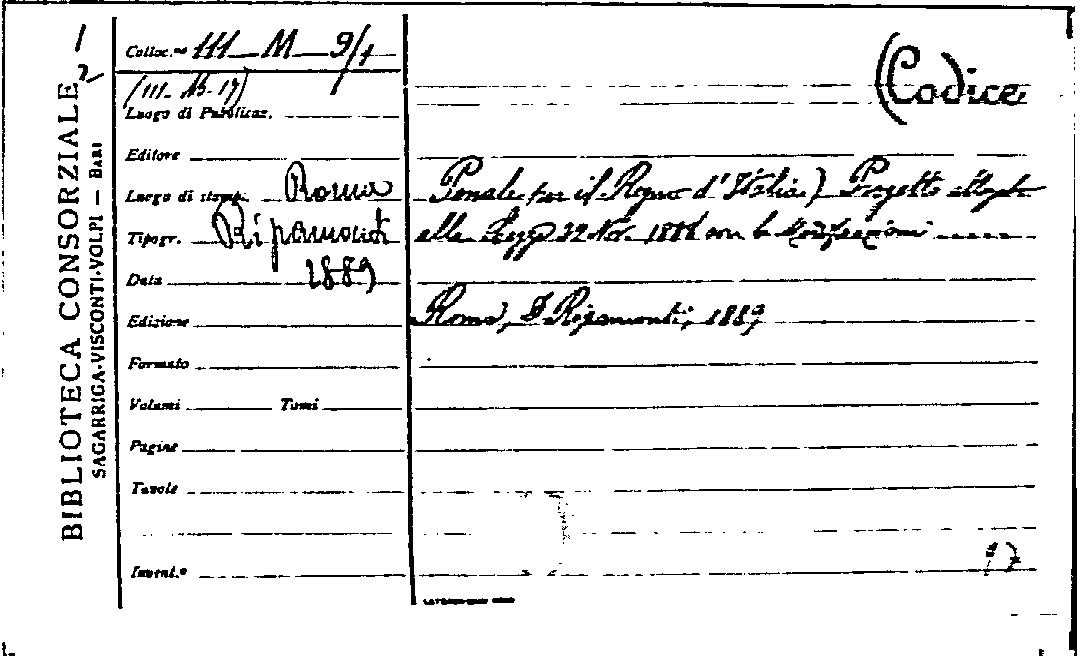 1
2
BIBLIOTECA CONSORZIALE
SAGARRIGA-VISCONTI-VOLPI — BARI
Colloc.ne 111 M 9/1
(111. 13. 17)
Luogo di Pubblicaz.
Editore
Luogo di stampa Roma
Tipogr. Ripamonti
1889
Data
Edizione
Formato
Volumi Tomi
Pagine
Tavole
Invent.°
(Codice
Penale per il Regno d'Italia) Progetto
alla Legge 22 Nov. 1888 con le Modificazioni
Roma, Ripamonti, 1889